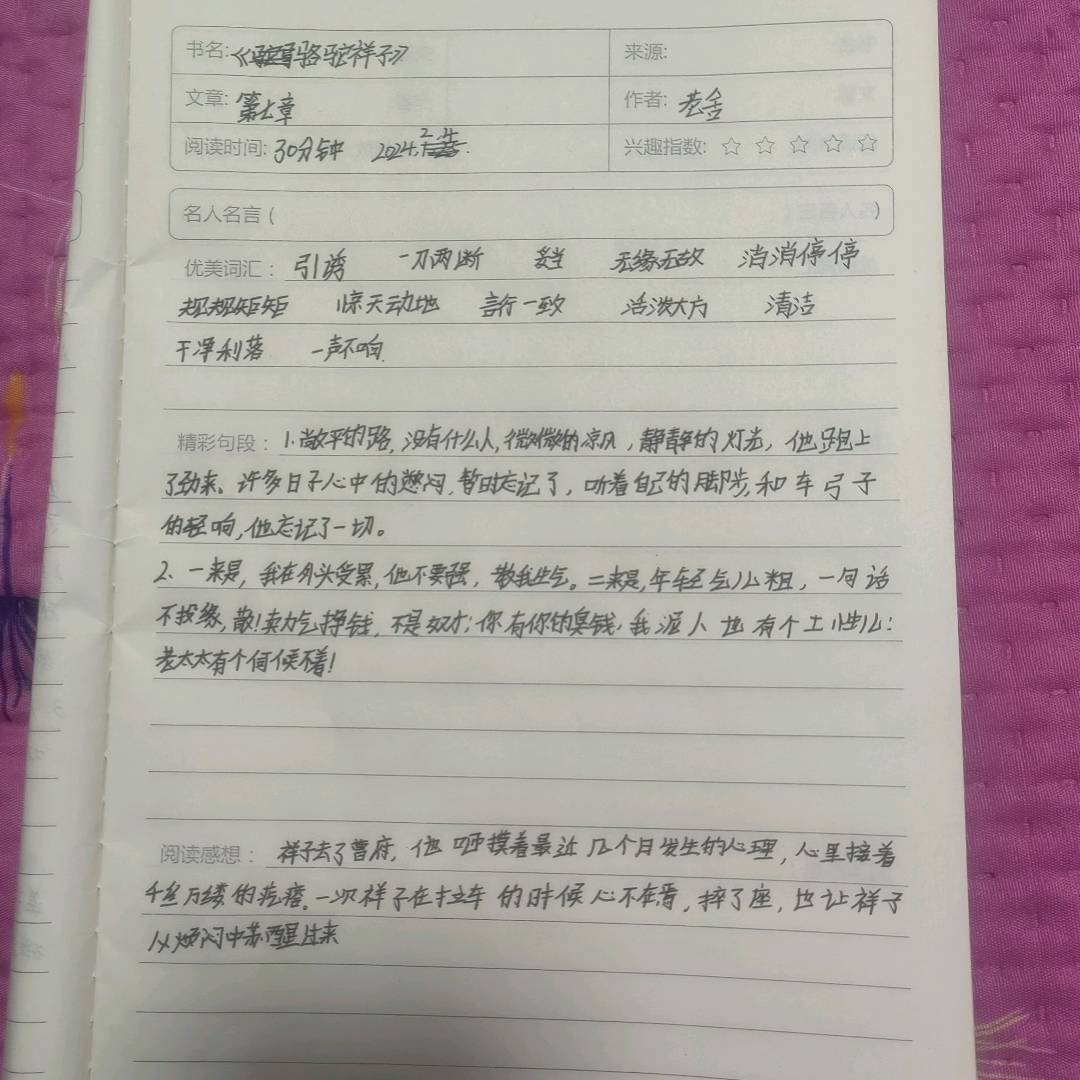 书名:《骆驼祥子》 来源:
文章: 第七章 作者: 老舍
阅读时间: 30分钟 2024.2.4. 兴趣指数: ☆ ☆ ☆ ☆ ☆
名人名言 ( )
优美词汇: 引诱 一刀两断 妥当 无缘无故 消消停停
规规矩矩 惊天动地 言行一致 活泼大方 清洁
干净利落 一声不响
精彩句段: 1.敞平的路,没有什么人,微微的凉风,静静的灯光,他跑上
了劲来、许多日子心中的憋闷,暂时忘记了,听着自己的脚步,和车弓子
的轻响,他忘记了一切。
2、一来是,我在外头受累,他不要强,散我生气。二来是,年轻气儿粗,一句话
不投缘,散!卖力气挣钱,不是奴才;你有你的臭钱,我泥人也有个土性儿:
老太太有个伺候不着!
阅读感想: 祥子去了曹府,他咂摸着最近几个月发生的心理,心里接着
千丝万缕的疙瘩.一次祥子在拉车的时候心不在焉,摔了座,也让祥子
从烦闷中苏醒过来